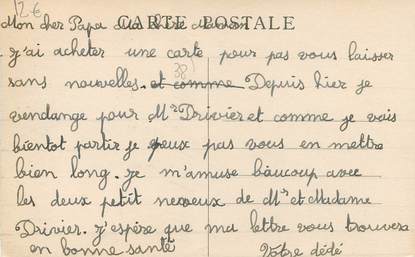 12€
CARTE POSTALE
Mon cher Papa
j'ai acheter une carte pour pas vous laisser
38
sans nouvelles. et comme Depuis hier je
vendange pour Mr Drivier et comme je vais
bientot partir je peux pas vous en mettre
bien long. je m'amuse baucoup avec
les deux petit neveux de Mr et Madame
Drivier. j'espère que ma lettre vous trouvera
en bonne santé
Votre dédé